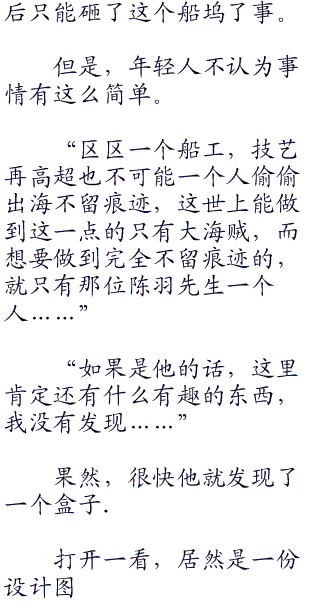 后只能砸了这个船坞了事。
但是，年轻人不认为事
情有这么简单。
“区区一个船工，技艺
再高超也不可能一个人偷偷
出海不留痕迹，这世上能做
到这一点的只有大海贼，而
想要做到完全不留痕迹的，
就只有那位陈羽先生一个
人……”
“如果是他的话，这里
肯定还有什么有趣的东西，
我没有发现……”
果然，很快他就发现了
一个盒子．
打开一看，居然是一份
设计图